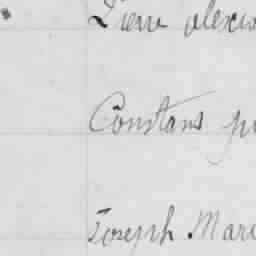 Pierre alexis
Constans pi
Joseph Mari